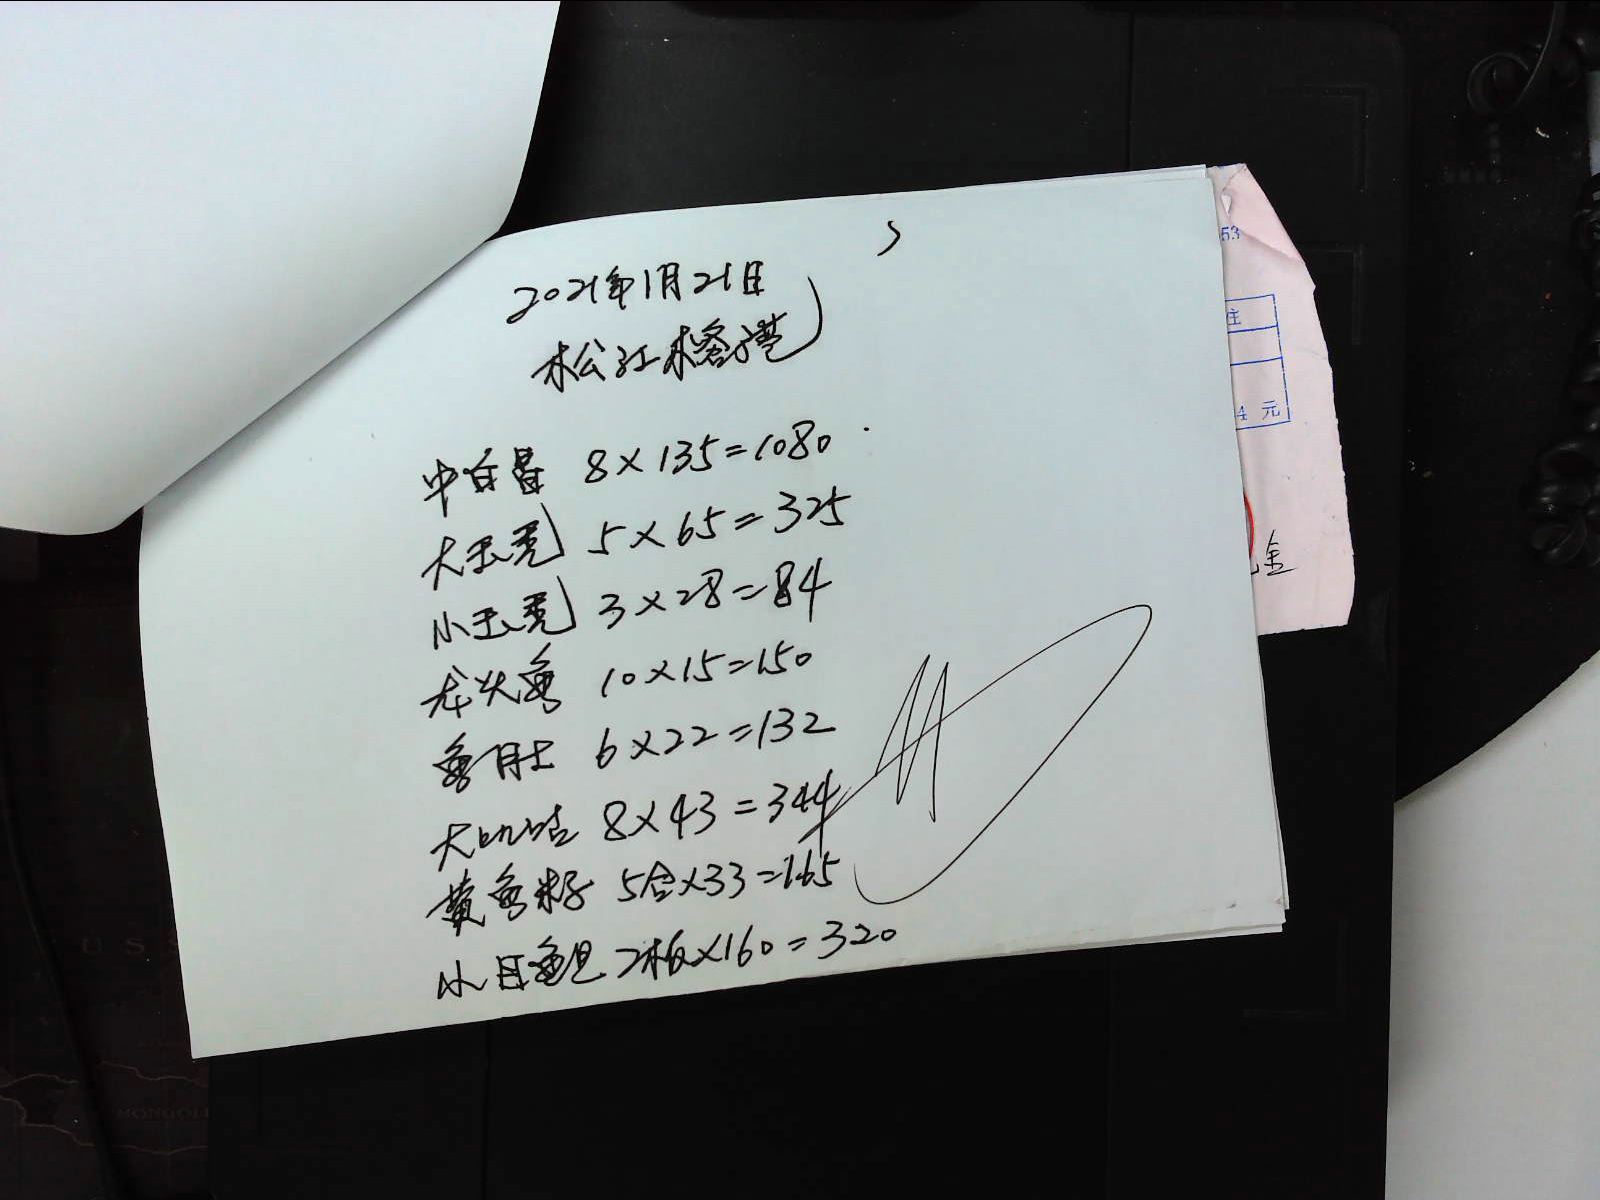 2021年1月21日
松江榕港
中白昌 8×135=1080
大玉秃 5×65=325
小玉秃 3×28=84
龙头鱼 10×15=150
鱼肚 6×22=132
大 8×43=344
黄鱼籽 5合×33=165
小目鱼 2板×160=320
53
住
4 元
金
USS
MONGOLI